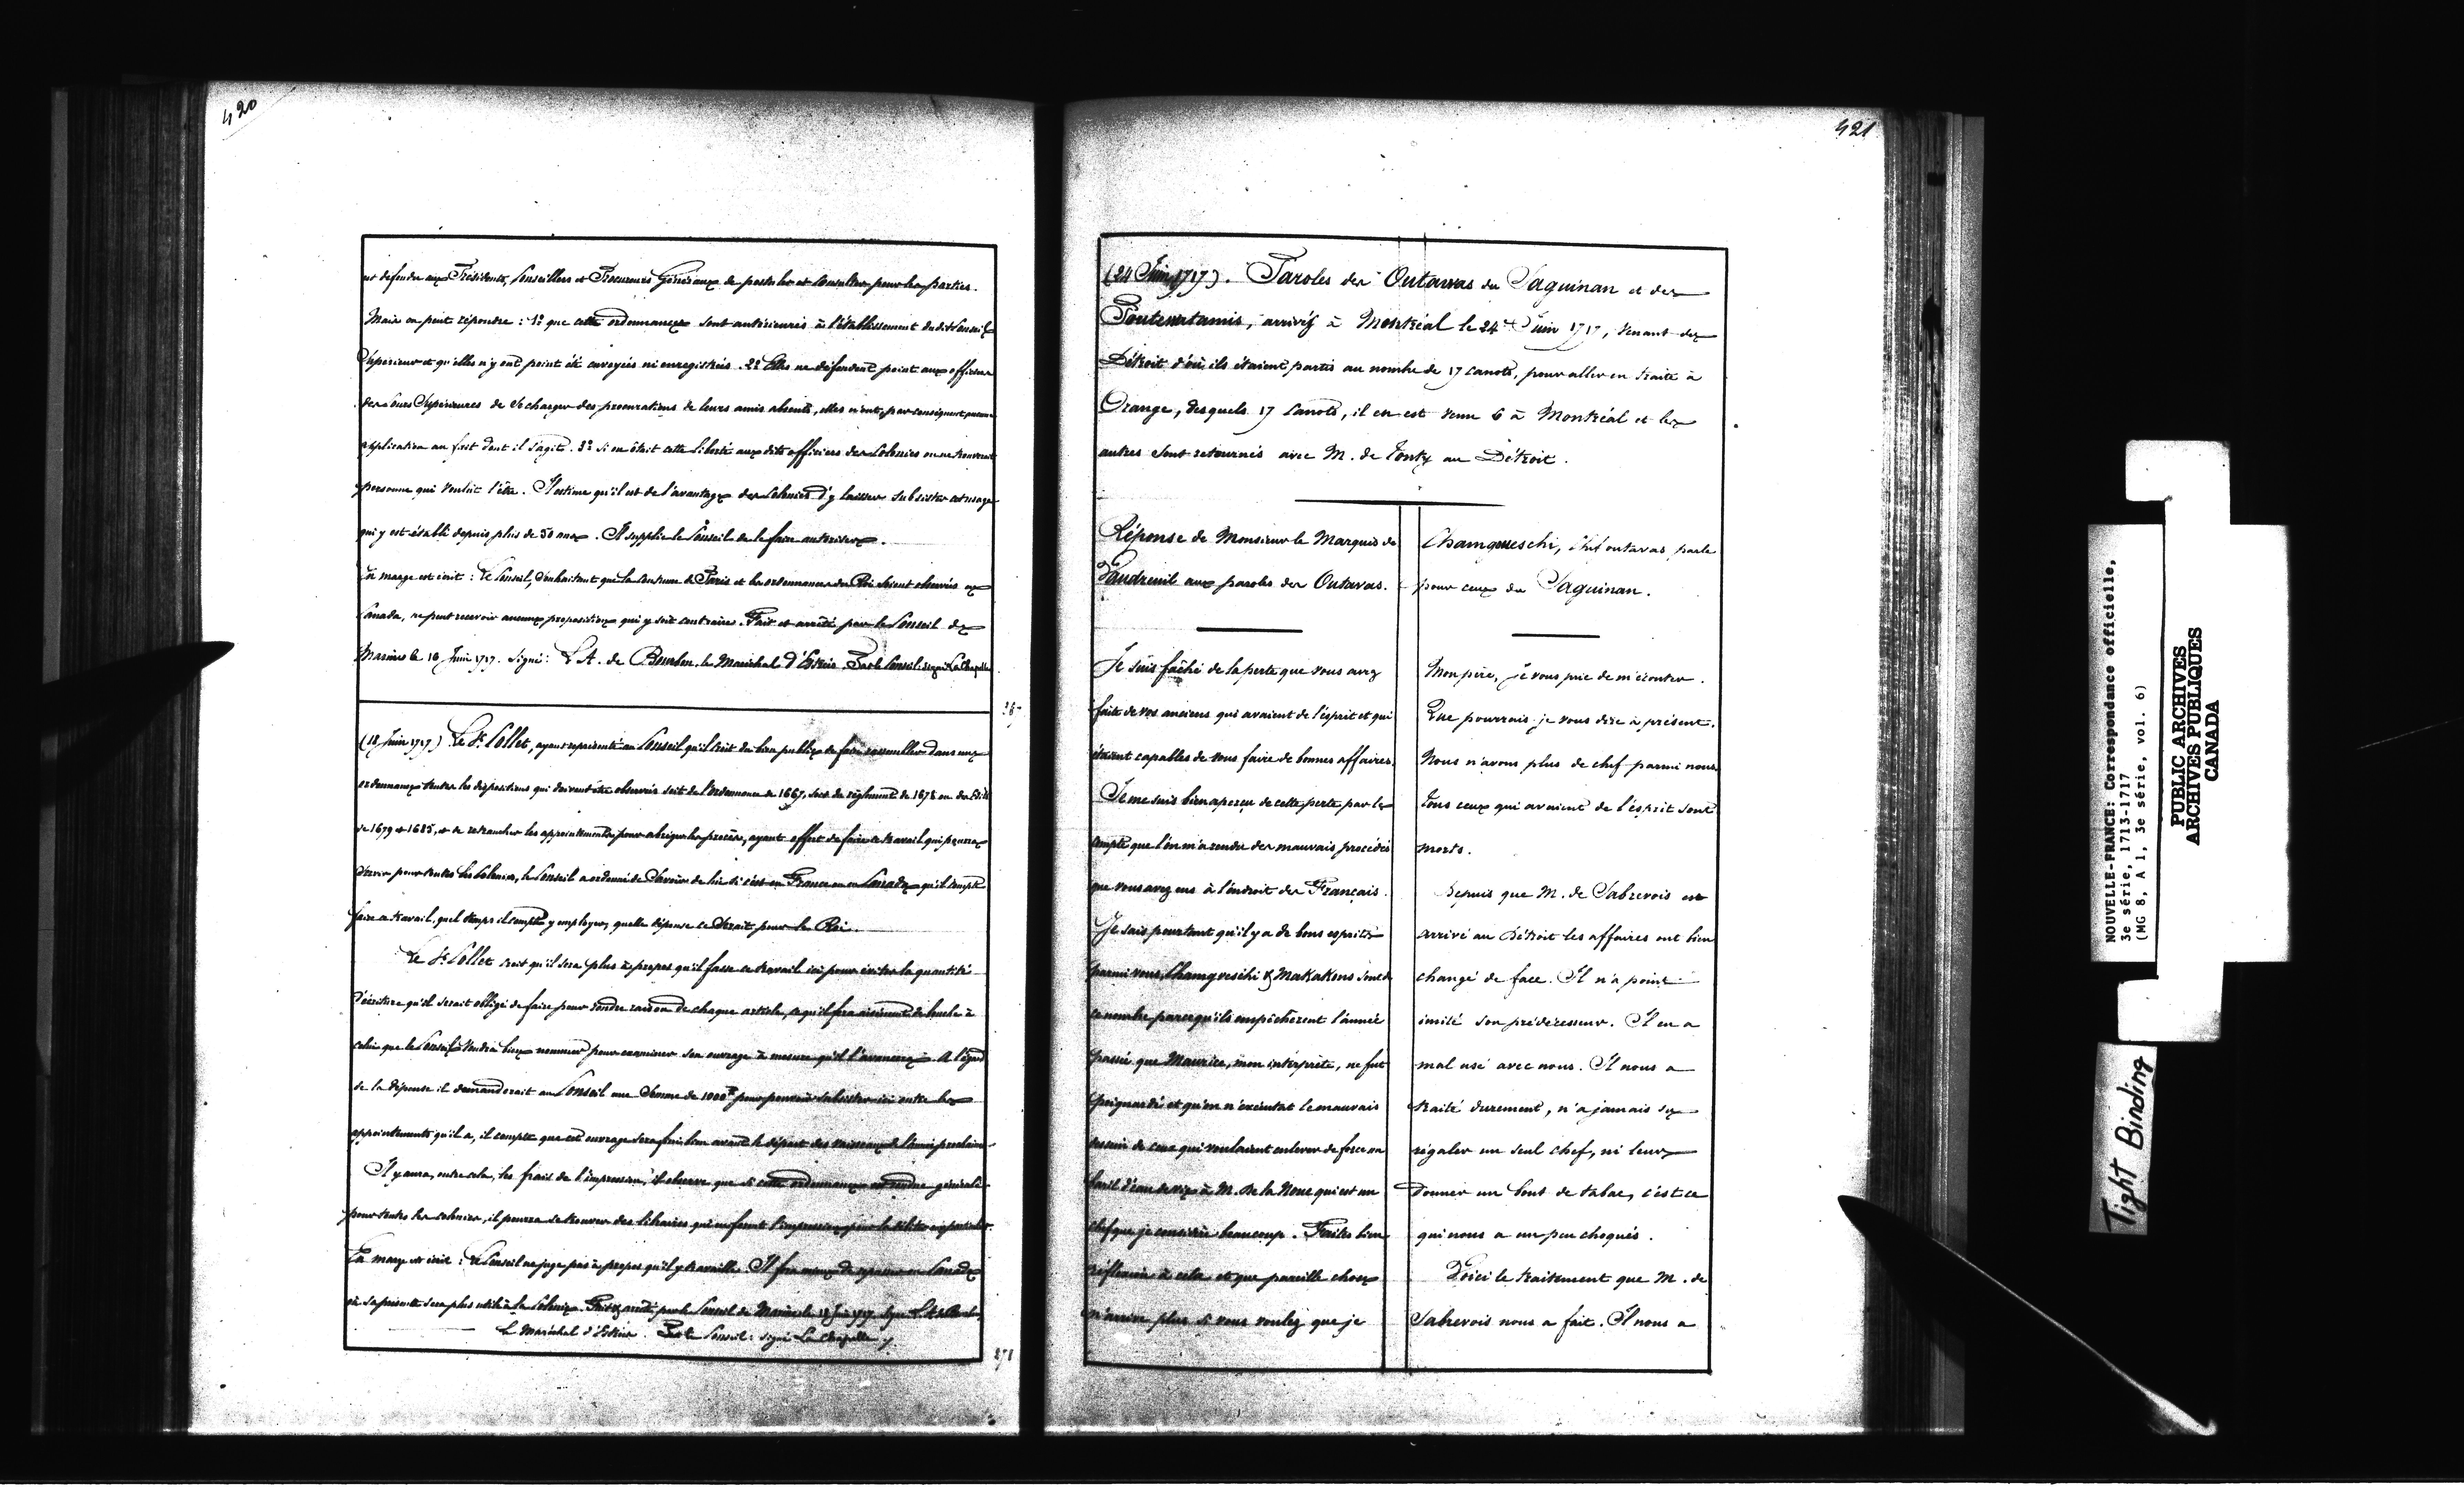 420
est défendu aux Présidents, Conseillers et Procureurs Généraux de postuler et consulter pour les parties.
Mais on peut répondre : 1º que cette ordonnance sont antérieures à l'établissement du dit Conseil
Supérieur et qu'elles n'y ont point été envoyées ni enregistrées. 2º Elles ne défendent point aux officiers
des Cours Supérieures de se charger des procurations de leurs amis absents, elles n'ont, par conséquent, aucune
application au fait dont il s'agit. 3º si on ôtait cette liberté aux dits officiers des Colonies on ne trouverait
personne qui voulut l'être. J'estime qu'il est de l'avantage des Colonies d'y laisser subsister cet usage
qui y est établi depuis plus de 50 ans. Il supplie le Conseil de le faire autoriser.
En marge est écrit : Le Conseil, souhaitant que la Coutume de Paris et les ordonnances du Roi soient observés en
Canada, ne peut recevoir aucune proposition qui y soit contraire. Fait et arrêté par le Conseil de
Marine le 18 Juin 1717. Signé : L. A. de Bourbon, le Maréchal d'Estrées. Par le Conseil: signé La Chapelle
(18 Juin 1717) Le Sr Collet, ayant représenté au Conseil qu'il croit du bien public de faire dans une
ordonnance toutes les dispositions qui doivent être observées soit de l'ordonnance de 1667, soit du règlement de 1678 ou des Edits
de 1679 et 1685, et de retrancher les appointements pour abréger les procès, ayant offert de faire ce travail qui pourra
servir pour toutes les Colonies, le Conseil a ordonné de savoir de lui si c'est en France ou en Canada qu'il compte
faire ce travail, quel temps il compte y employer, quelle dépense ce serait pour le Roi.
Le Sr Collet croit qu'il sera plus à propos qu'il fasse ce travail ici pour éviter la quantité
d'écriture qu'il serait obligé de faire pour rendre raison de chaque article, ce qu'il fera aisément de bouche à
celui que le Conseil voudra bien nommer pour examiner son ouvrage à mesure qu'il l'avancera. A l'égard
de la dépense il demanderait au Conseil une somme de 1000 # pour pouvoir subsister ici outre les
appointements qu'il a, il compte que cet ouvrage sera fini bien avant le départ des vaisseaux de l'année prochaine.
Il y aura, outre cela, les frais de l'impression, il observe que si cette ordonnance est rendue générale
pour toutes les colonies, il pourra se trouver des libraires qui en feront l'impression
En marge est écrit : Le Conseil ne juge pas à propos qu'il y travaille. Il fera mieux de repasser en Canada
où sa présence sera plus utile à la Colonie. Fait et arrêté par le Conseil de Marine le 18 Juin 1717. Signé L. A. de Bourbon,
Le Maréchal d'Estrées. Par le Conseil : signé La Chapelle
421
(24 Juin 1717). Paroles des Outavas du Saguinan et des
Poutewatamis, arrivés à Montréal le 24 Juin 1717, venant du
Détroit d'où ils étaient partis au nombre de 17 canots, pour aller en traite à
Orange, desquels 17 canots, il en est venu 6 à Montréal et les
autres sont retournés avec M. de Tonty au Détroit.
Réponse de Monsieur le Marquis de
Vaudreuil aux paroles des Outavas.
Je suis fâché de la perte que vous avez
faite de vos anciens qui avaient de l'esprit et qui
étaient capables de vous faire de bonnes affaires.
Je me suis bien aperçu de cette perte par le
compte que l'on m'a rendu des mauvais procédés
que vous avez eus à l'endroit des Français.
Je sais pourtant qu'il y a de bons esprits
parmi vous, Chamgoueschi & Makakons sont de
ce nombre parce qu'ils empêchèrent l'année
passée que Maurice, mon interprète, ne fut
poignardé et qu'on n'exécutat le mauvais
dessein de ceux qui voulaient enlever de force un
baril d'eau de vie à M. de la Noue qui est un
chef que je considère beaucoup. Faites bien
réflexion à cela et que pareille chose
n'arrive plus si vous voulez que je
Chamgoueschi, Chef outavas, parle
pour ceux du Saguinan.
Mon père, je vous prie de m'écouter.
Que pourrais-je vous dire à présent.
Nous n'avons plus de chef parmi nous
tous ceux qui avaient de l'esprit sont
morts.
Depuis que M. de Sabrevois est
arrivé au Détroit les affaires ont bien
changé de face. Il n'a point
imité son prédécesseur. Il en a
mal usé avec nous. Il nous a
traité durement, n'a jamais su
régaler un seul chef, ni leur
donner un bout de tabac, c'est ce
qui nous a un peu choqués.
Voici le traitement que M. de
Sabrevois nous a fait. Il nous a
NOUVELLE-FRANCE: Correspondance officielle,
3e série, 1713-1717
(MG 8, A 1, 3e série, vol. 6)
PUBLIC ARCHIVES
ARCHIVES PUBLIQUES
CANADA
Tight Binding